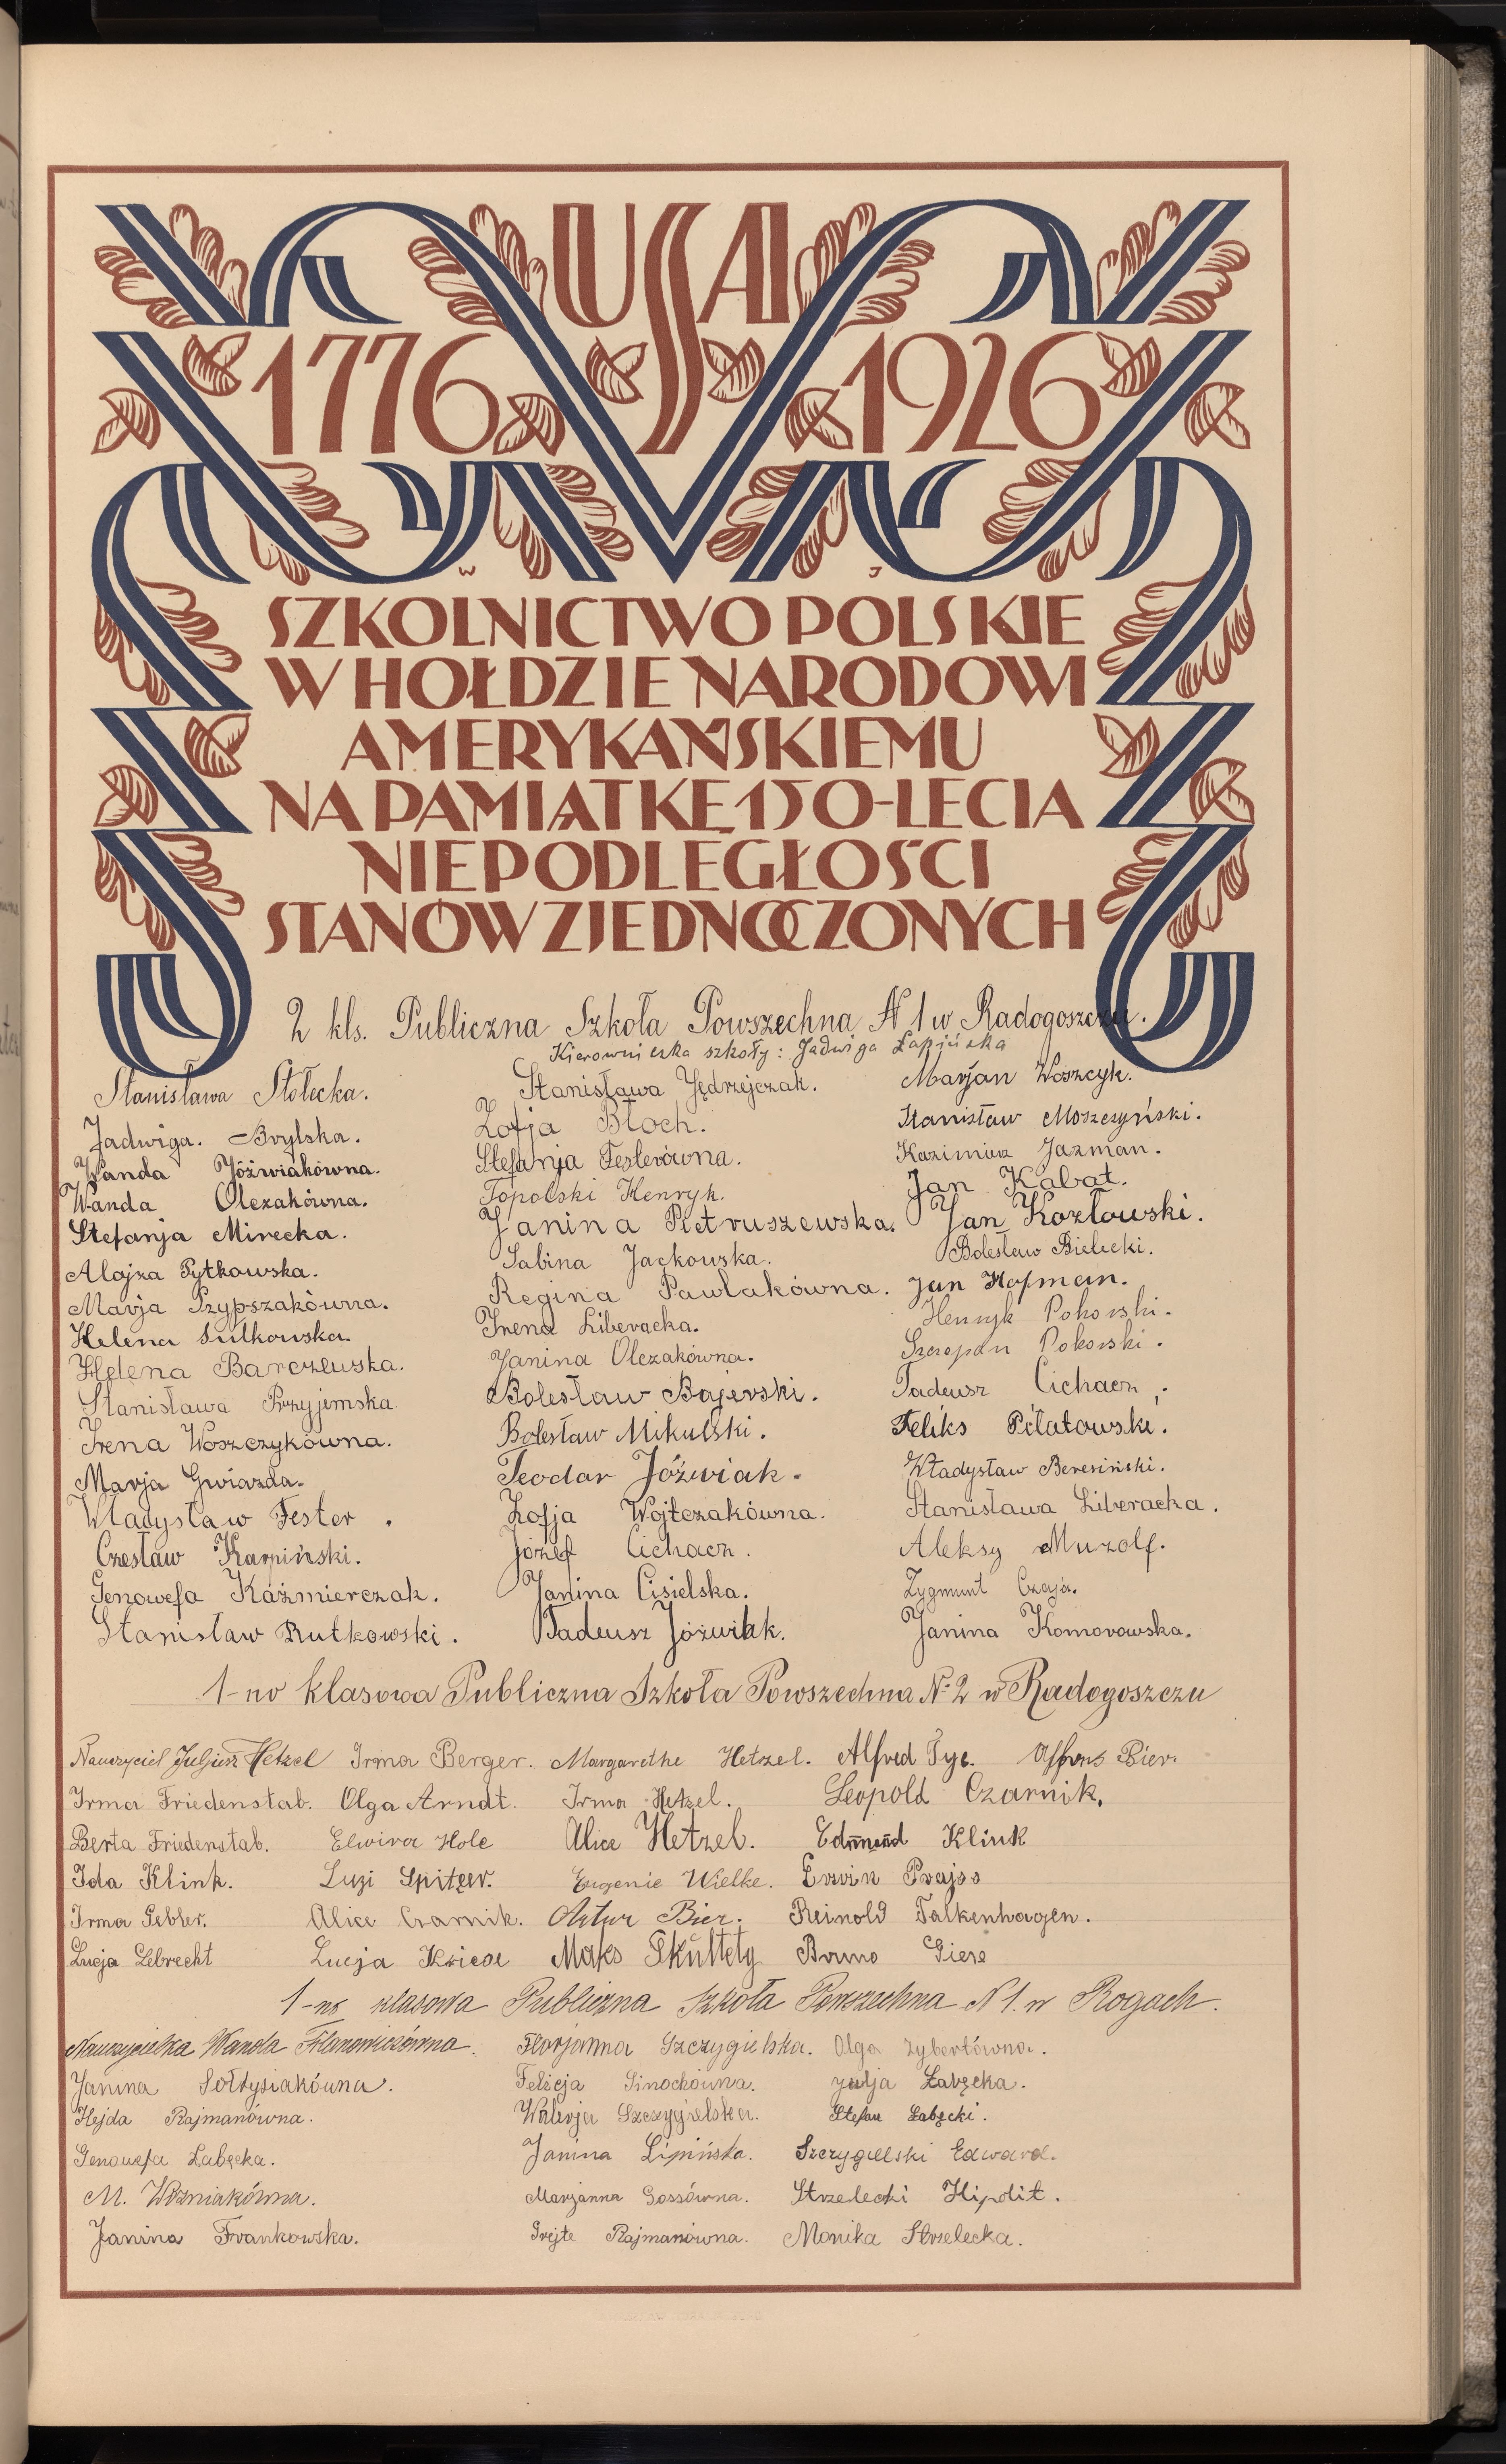 USA
1776 1926
W J
SZKOLNICTWO POLSKIE
W HOŁDZIE NARODOWI
AMERYKAŃSKIEMU
NA PAMIĄTKĘ 150-LECIA
NIEPODLEGŁOŚCI
STANÓW ZJEDNOCZONYCH
2 kls. Publiczna Szkoła Powszechna N 1 w Radogoszczu.
Kierowniczka szkoły: Jadwiga Łapińska
Stanisława Stołecka.
Jadwiga. Brylska.
Wanda Jóźwiakówna.
Wanda Olczakówna.
Stefanja Mirecka.
Alojza Pytkowska.
Marja Przypszakówna.
Helena Sulkowska.
Helena Barczewska.
Stanisława Przyjemska.
Irena Woszczykówna.
Marja Gwiazda.
Władysław Fester.
Czesław Karpiński.
Genowefa Kaźmierczak.
Stanisław Rutkowski.
Stanisława Jędrzejczak.
Zofja Błoch.
Stefanja Festerówna.
Topolski Henryk.
Janina Pietruszewska.
Sabina Jackowska.
Regina Pawlakówna.
Irena Liberacka.
Janina Olczakówna.
Bolesław Bajerski.
Bolesław Mikulski.
Teodor Jóźwiak.
Zofja Wojtczakówna.
Józef Cichacz.
Janina Cisielska.
Tadeusz Jóźwiak.
Marjan Woszcyk.
Stanisław Moszczyński.
Kazimierz Jazman.
Jan Kabat.
Jan Kozłowski.
Bolesław Bielecki.
Jan Hofman.
Henryk Pokorski.
Szczepan Pokorski.
Tadeusz Cichacz.
Feliks Piłatowski.
Władysław Beresiński.
Stanisława Liberacka.
Aleksy Muzolf.
Zygmunt Czaja.
Janina Komorowska.
1-no klasowa Publiczna Szkoła Powszechna N: 2 w Radogoszczu
Nauczyciel Juljusz Hetzel Irma Berger. Margarethe Hetzel. Alfred Tyc. Alfons Bier.
Irma Friedenstab. Olga Arndt. Irma Hetzel. Leopold Czarnik.
Berta Friedenstab. Elwira Hole Alice Hetzel. Edmund Klink
Ida Klink. Luzi Spitzer. Eugenie Wielke. Erwin Prajss
Irma Gebler. Alice Czarnik. Artur Bier. Reinold Falkenhagen.
Lucja Lebrecht Lucja Maks Skultety Bruno Giese
1-no klasowa Publiczna Szkoła Powszechna N 1. w Rogach.
Nauczycielka Wanda Florjanna Szczygielska. Olga Zybertówna.
Janina Sołtysiakówna. Felicja Sinochówna. Julja Łabęcka.
Hejda Rajmanówna. Walerja Szczygielska. Stefan Łabęcki.
Genowefa Łabęcka. Janina Lipińska. Szczygielski Edward.
M. Woźniakówna. Marjanna Gossówna. Strzelecki Hipolit.
Janina Frankowska. Grejte Rajmanówna. Monika Strzelecka.